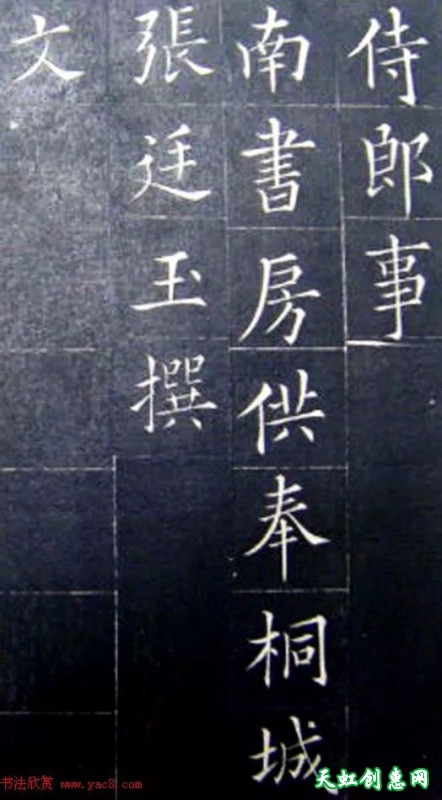 侍郎事
南書房供奉桐城
張廷玉撰
文
书法欣赏 www.yac8.com
天虹创惠网